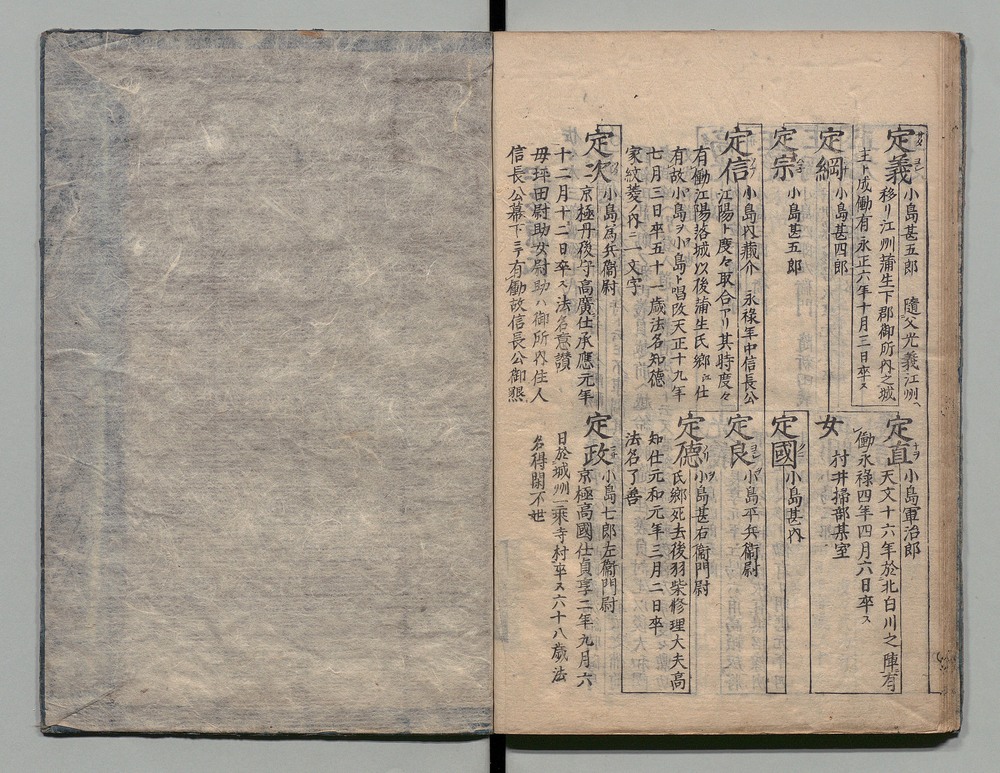 定義 小島甚五郎 隨父光義江州ヘ
移リ江州蒲生下郡御所内之城
主ト成働有 永正六年十月三日卒ス
定綱 小島甚四郎
定宗 小島甚五郎
定信 小島内藏介 永祿年中信長公
江陽ト度々取合アリ其時度々
有働江陽落城以後蒲生氏郷江仕
有故小島ヲ小島ト唱改天正十九年
七月三日卒五十一歳法名知徳
家紋菱ノ内三一文字
定次 小島為兵衞尉
京極丹後守高廣仕承應元年
十二月十二日卒ス法名意讃
母坪田尉助女尉助ハ御所内住人
信長公幕下ニテ有働故信長公御懇
定直 小島軍治郎
天文十六年於北白川之陣有
働永祿四年四月六日卒ス
女 村井掃部某室
定國 小島甚内
定良 小島平兵衞尉
定德 小島甚右衞門尉
氏郷死去後羽柴修理大夫高
知仕元和元年三月二日卒
法名了善
定政 小島七郎左衞門尉
京極高國仕貞享二年九月六
日於城州一乘寺村卒ス六十八歳法
名得閑不世